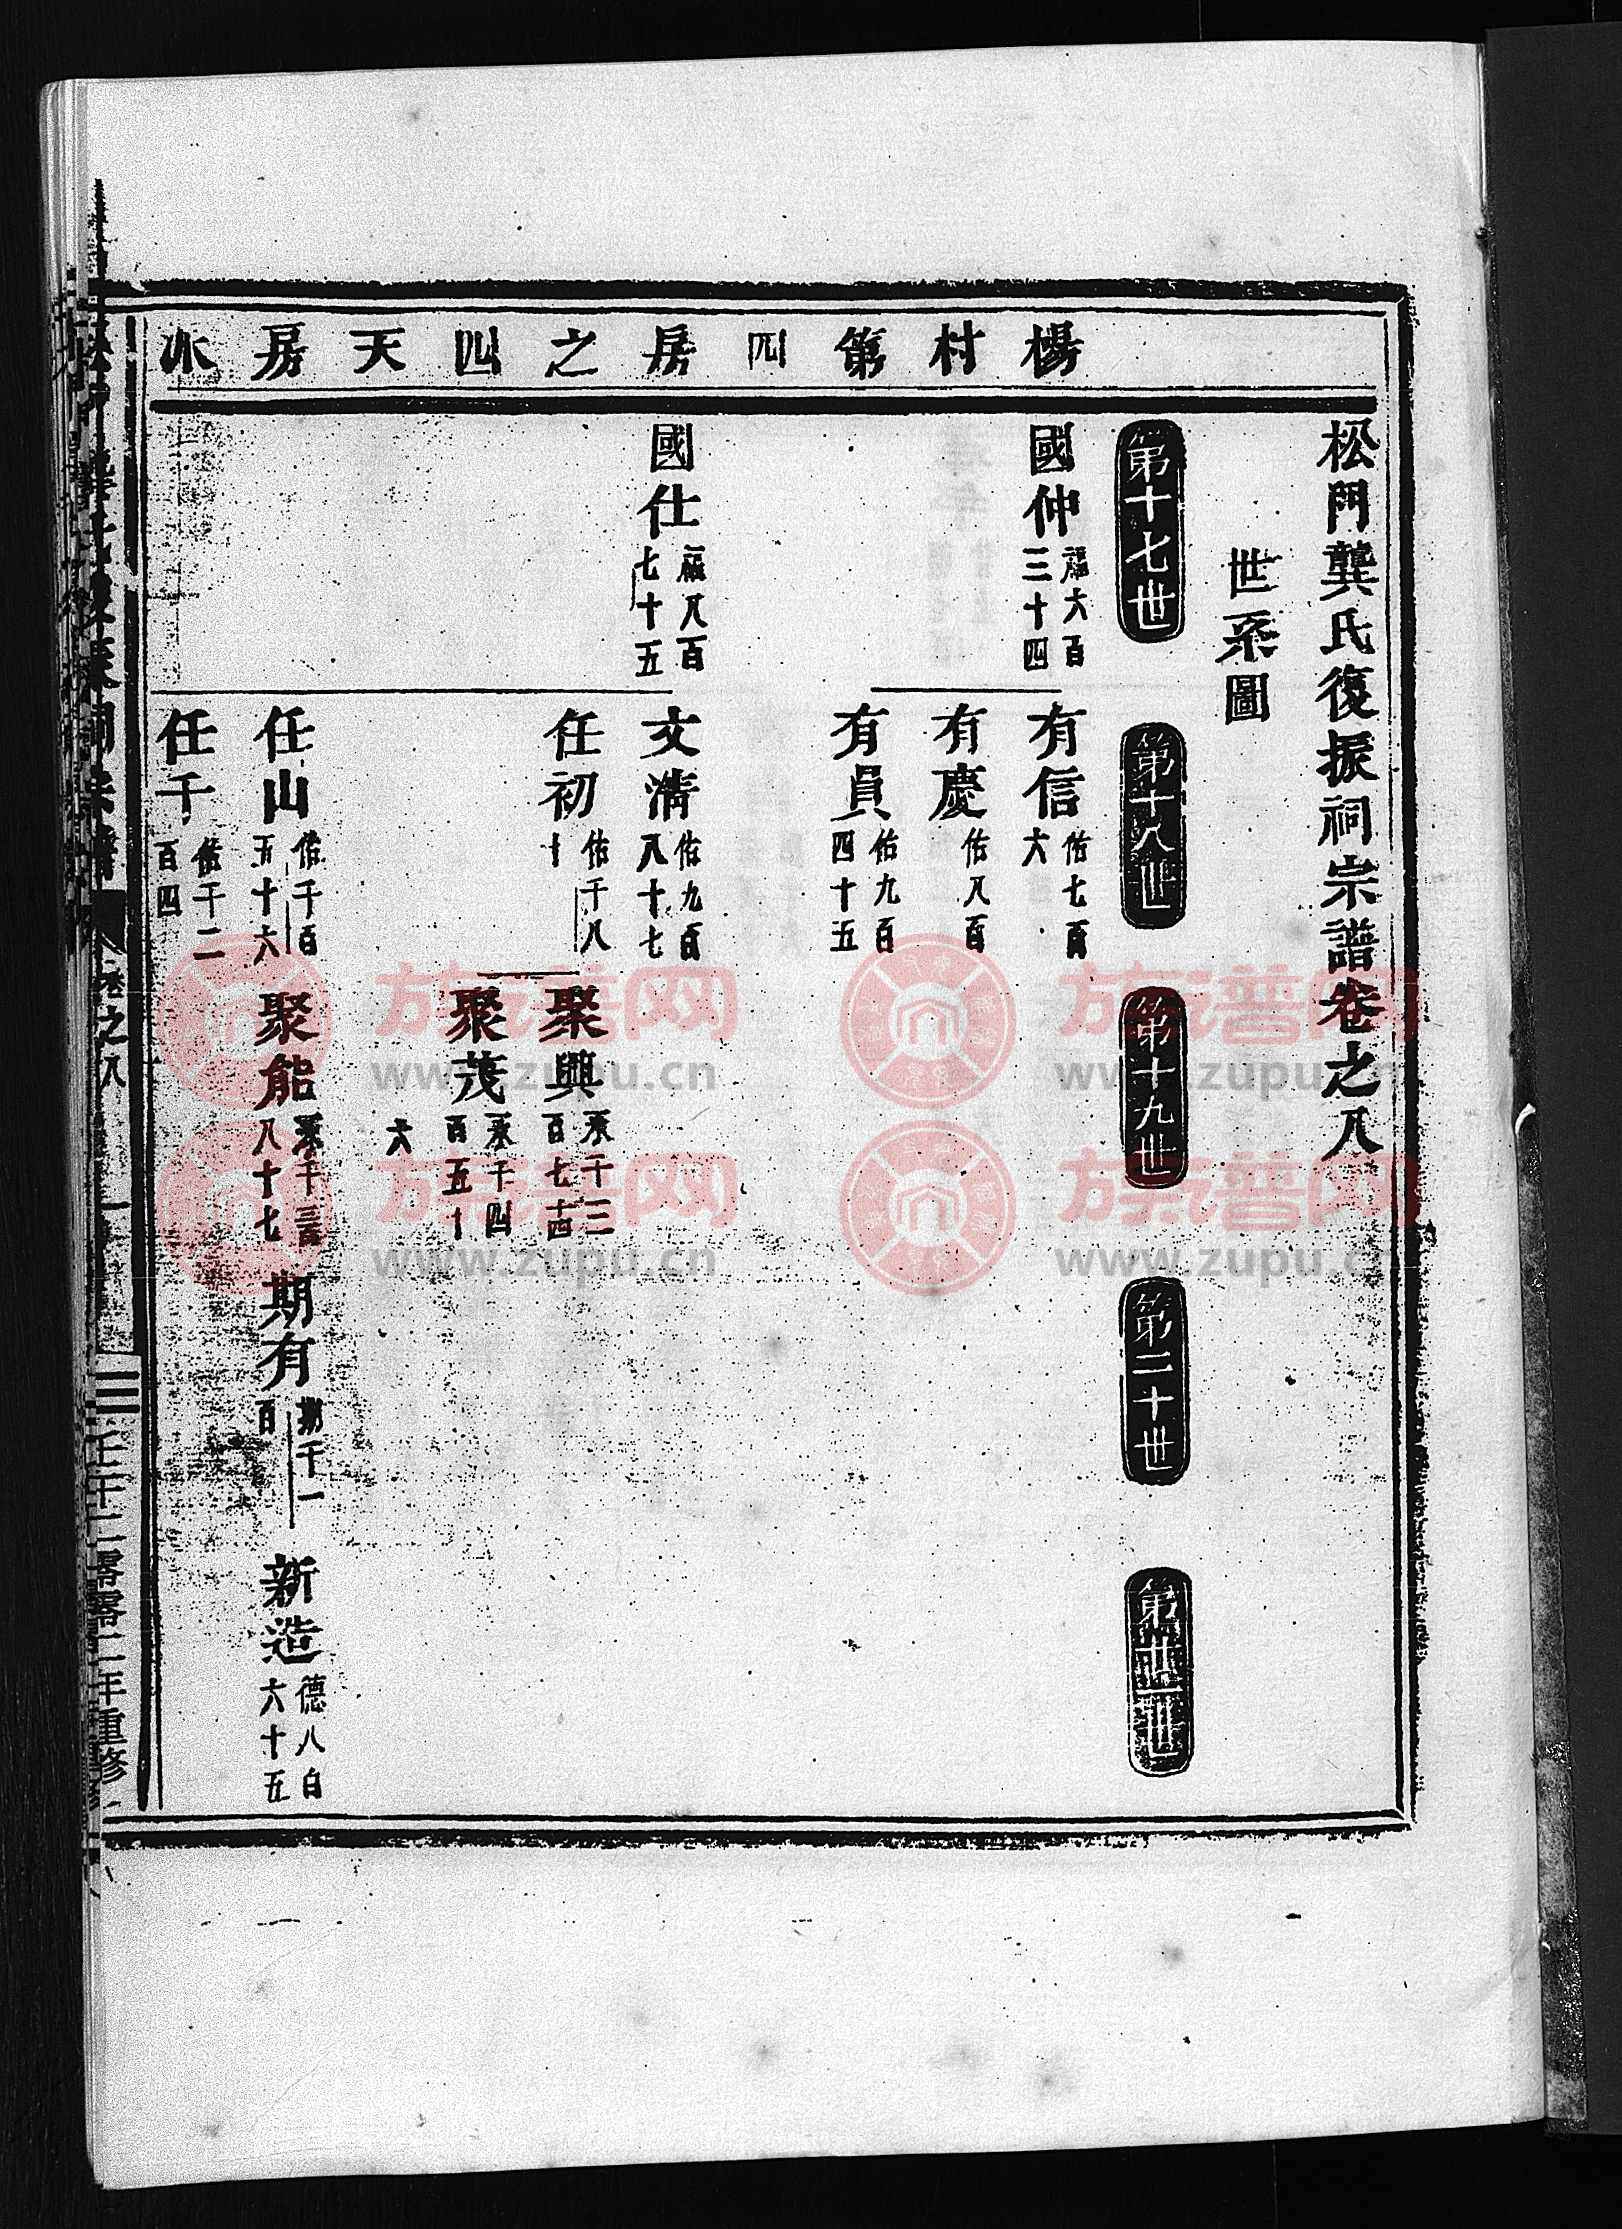 松門龔氏復振祠宗譜卷之八
世系圖
楊村第四房之四天房
第十七世
第十八世
第十九世
第二十世
第廿一世
國仲
福六百
三十四
有信
佑七百
六
有慶
佑八百
有員
佑九百
四十五
國仕
福八百
七十五
文清
佑九百
八十七
任初
佑千八
十
聚興
承千三
百七十
聚茂
承千四
百五十
六
任山
佑千百
五十六
聚能
承千三百
八十七
期有
百
新造
德八百
六十五
任千
佑千二
百四
卷之八
壬午二零零二年重修
族谱网
www.zupu.cn
族谱网
www.zupu.cn
族谱网
www.zupu.cn
族谱网
www.zupu.cn